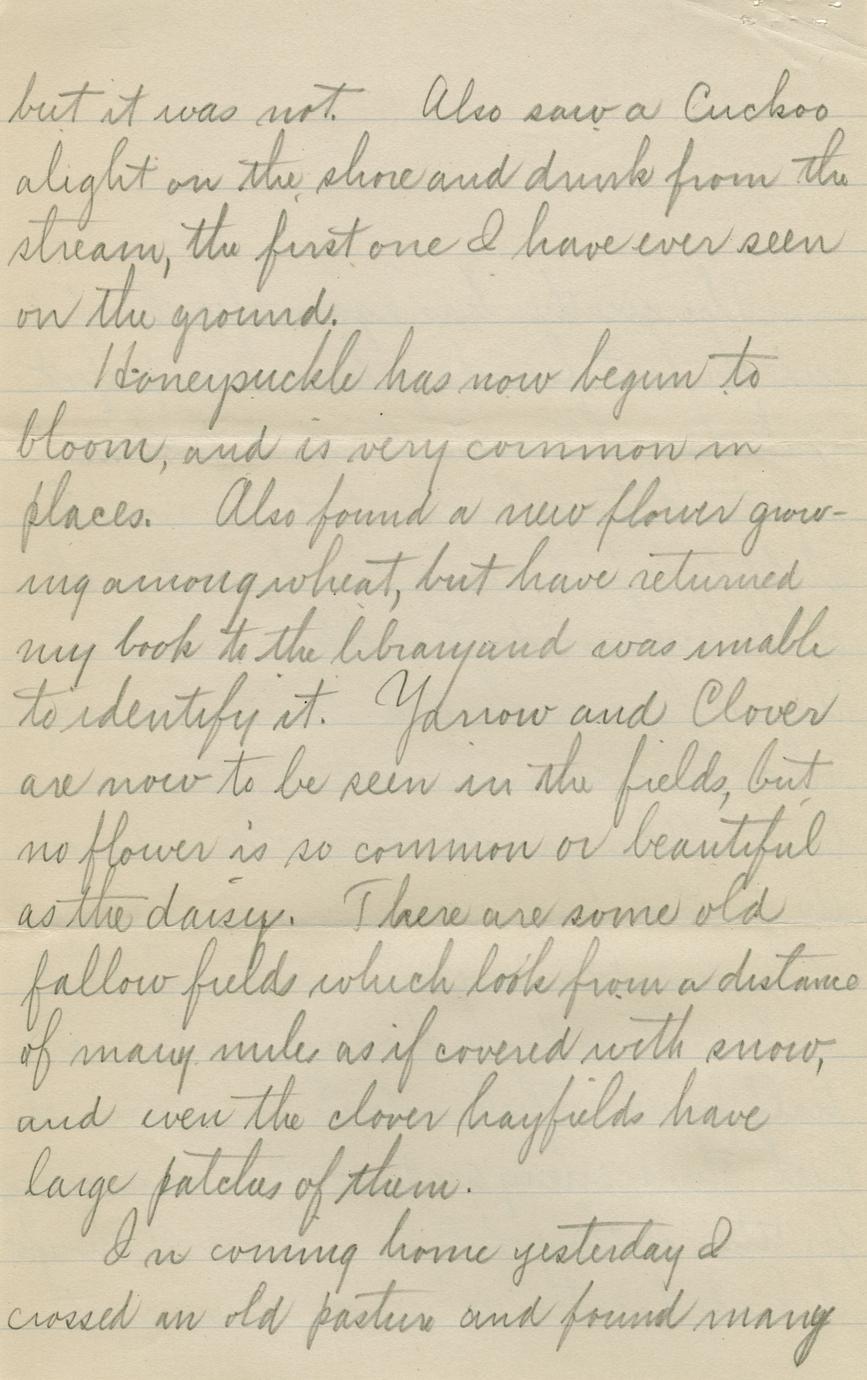 but it was not. Also saw a Cuckoo
alight on the shore and drink from the
stream, the first one I have ever seen
on the ground.
Honeysuckle has now begun to
bloom, and is very common in
places. Also found a new flower grow-
ing among wheat, but have returned
my book to the library and was unable
to identify it. Yarrow and Clover
are now to be seen in the fields, but
no flower is so common or beautiful
as the daisy. There are some old
fallow fields which look from a distance
of many miles as if covered with snow,
and even the clover hayfields have
large patches of them.
In coming home yesterday I
crossed an old pasture and found many